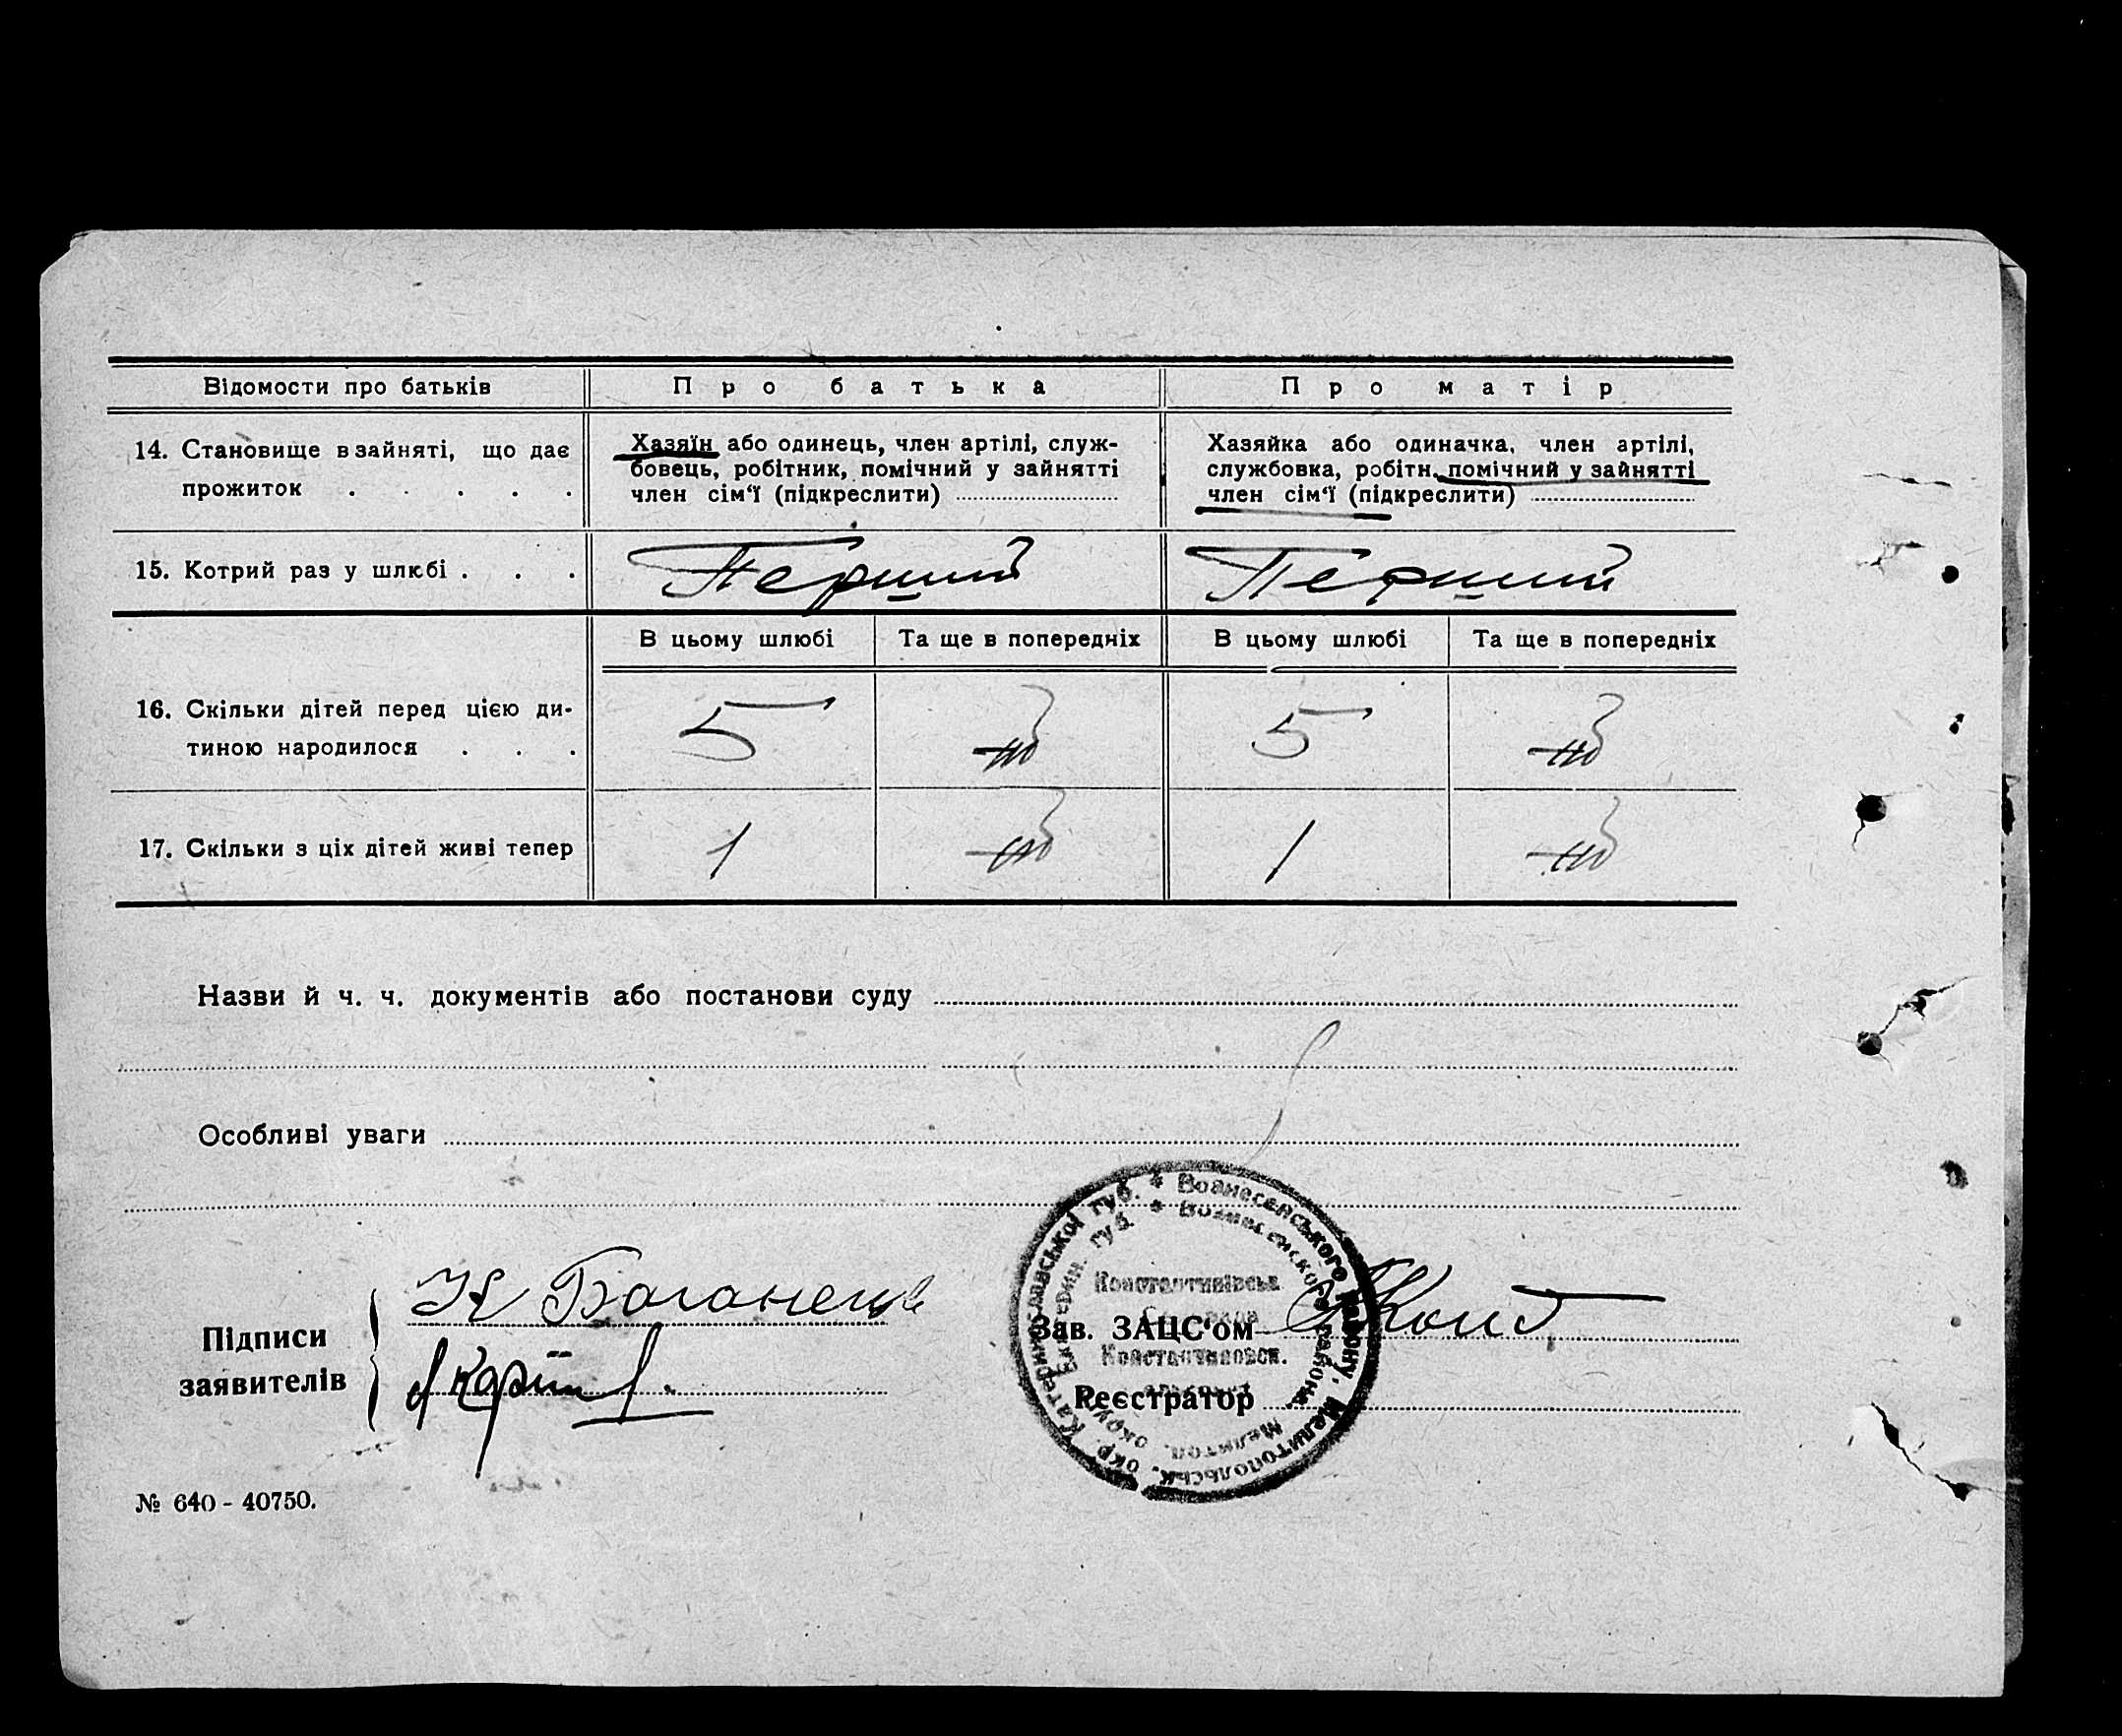 Відомости про батьків
Про батька
Про матір
14. Становище в зайняті, що дає
прожиток . . . . .
Хазяїн або одинець, член артілі, служ-
бовець, робітник, помічний у зайнятті
член сім‘ї (підкреслити)
Хазяйка або одиначка, член артілі,
службовка, робітн. помічний у зайнятті
член сім‘ї (підкреслити)
15. Котрий раз у шлюбі . . .
Перший
Перший
В цьому шлюбі
Та ще в попередніх
В цьому шлюбі
Та ще в попередніх
16. Скільки дітей перед цією ди-
тиною народилося . . .
5
5
17. Скільки з ціх дітей живі тепер
1
1
Назви й ч. ч. документів або постанови суду
Особливі уваги
Підписи
заявителів
Зав. ЗАЦС‘ом
Реєстратор
Катеринославської губ. * Вознесенського району, Мелитопольськ. окр.
Екатерин. губ. * Вознесенского района Мелитоп. окру
Константинівськ
Константиновск.
№ 640 - 40750.